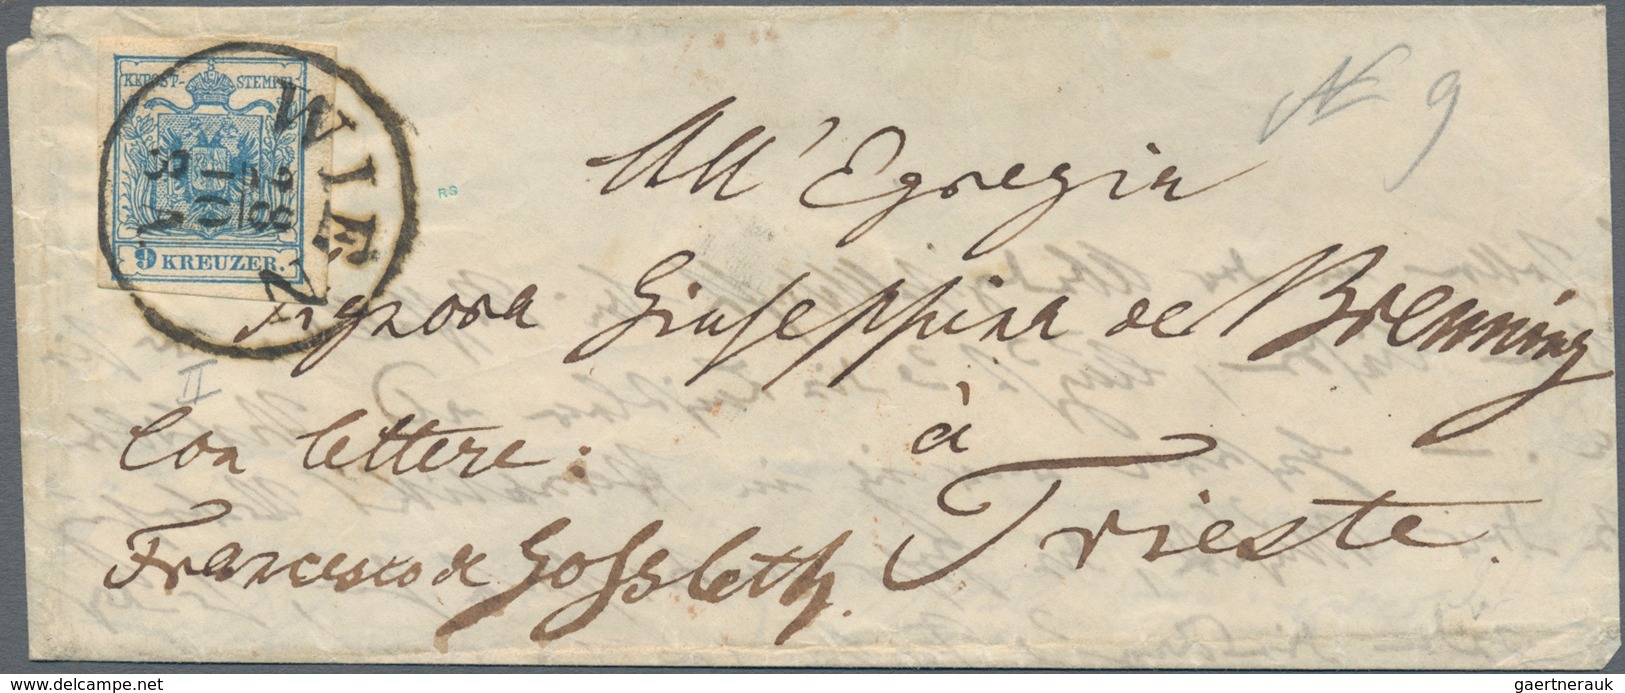 KKPOST-STEMPEL
9 KREUZER.
WIEN
RS
№ 9
All' Egregia
Signora Giuseppina de Brenning
à
Trieste.
Con lettere:
Francesco de Gossleth.
II
www.delcampe.net
gaertnerauk